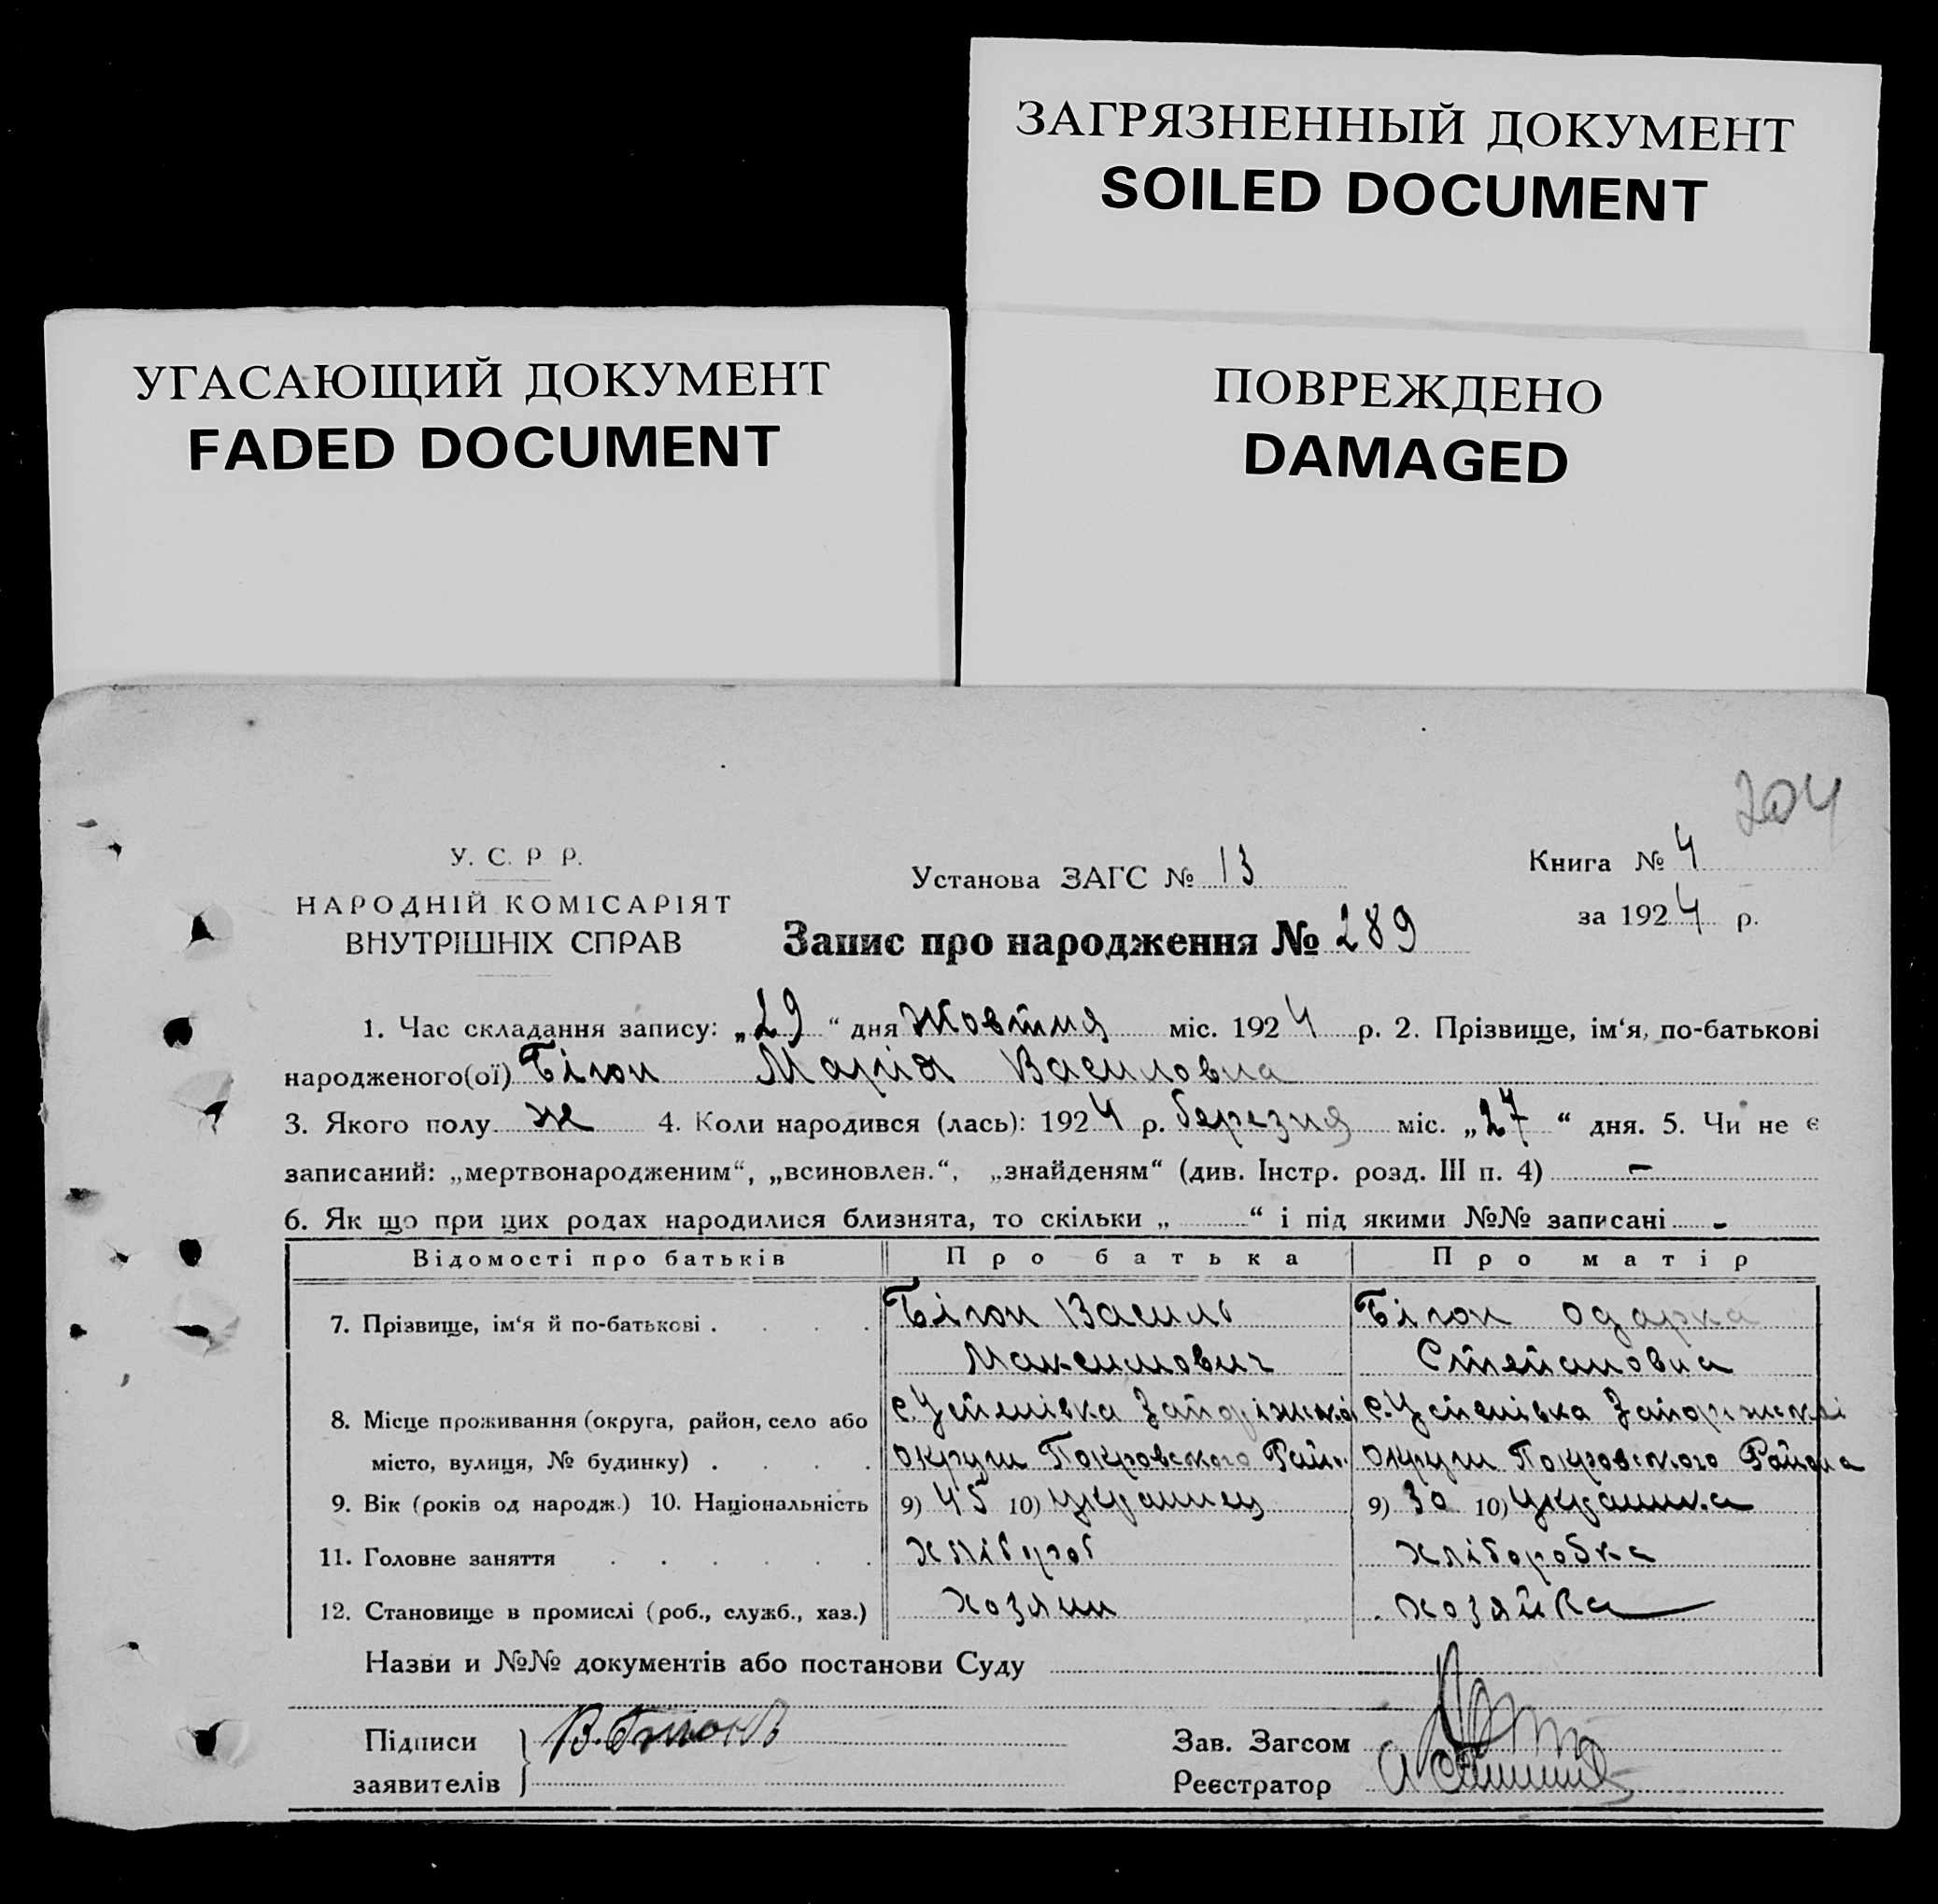 ЗАГРЯЗНЕННЫЙ ДОКУМЕНТ
SOILED DOCUMENT
УГАСАЮЩИЙ ДОКУМЕНТ
FADED DOCUMENT
ПОВРЕЖДЕНО
DAMAGED
204
У. С. Р Р.
НАРОДНІЙ КОМІСАРІЯТ
ВНУТРІШНІХ СПРАВ
Установа ЗАГС № 13
Запис про народження № 289
Книга № 4
за 1924 р.
1. Час складання запису: „29“ дня Жовтня міс. 1924 р. 2. Прізвище, ім‘я, по-батькові
народженого(ої) Марія Василовна
3. Якого полу ж 4. Коли народився (лась): 1924 р. березня міс. „27“ дня. 5. Чи не є
записаний: „мертвонародженим“, „всиновлен.“, „знайденям“ (див. Інстр. розд. III п. 4) –
6. Як що при цих родах народилися близнята, то скільки „ “ і під якими №№ записані -
Відомості про батьків Про батька Про матір
7. Прізвище, ім‘я й по-батькові . . . . Василь Одарка
Максимович Степановна
8. Місце проживання (округа, район, село або с. Успенівка Запоріжскоі с. Успенівка Запоріжскоі
місто, вулиця, № будинку) . . . . округи Покровского Рай.. округи Покровского Района
9. Вік (років од народж.) 10. Національність 9) 45 10) Украинец 9) 30 10) Украинка
11. Головне заняття . . . . . . хлібороб хліборобка
12. Становище в промислі (роб., служб., хаз.) хозяин хозяйка
Назви и №№ документів або постанови Суду
Підписи
заявителів
Зав. Загсом
Реєстратор